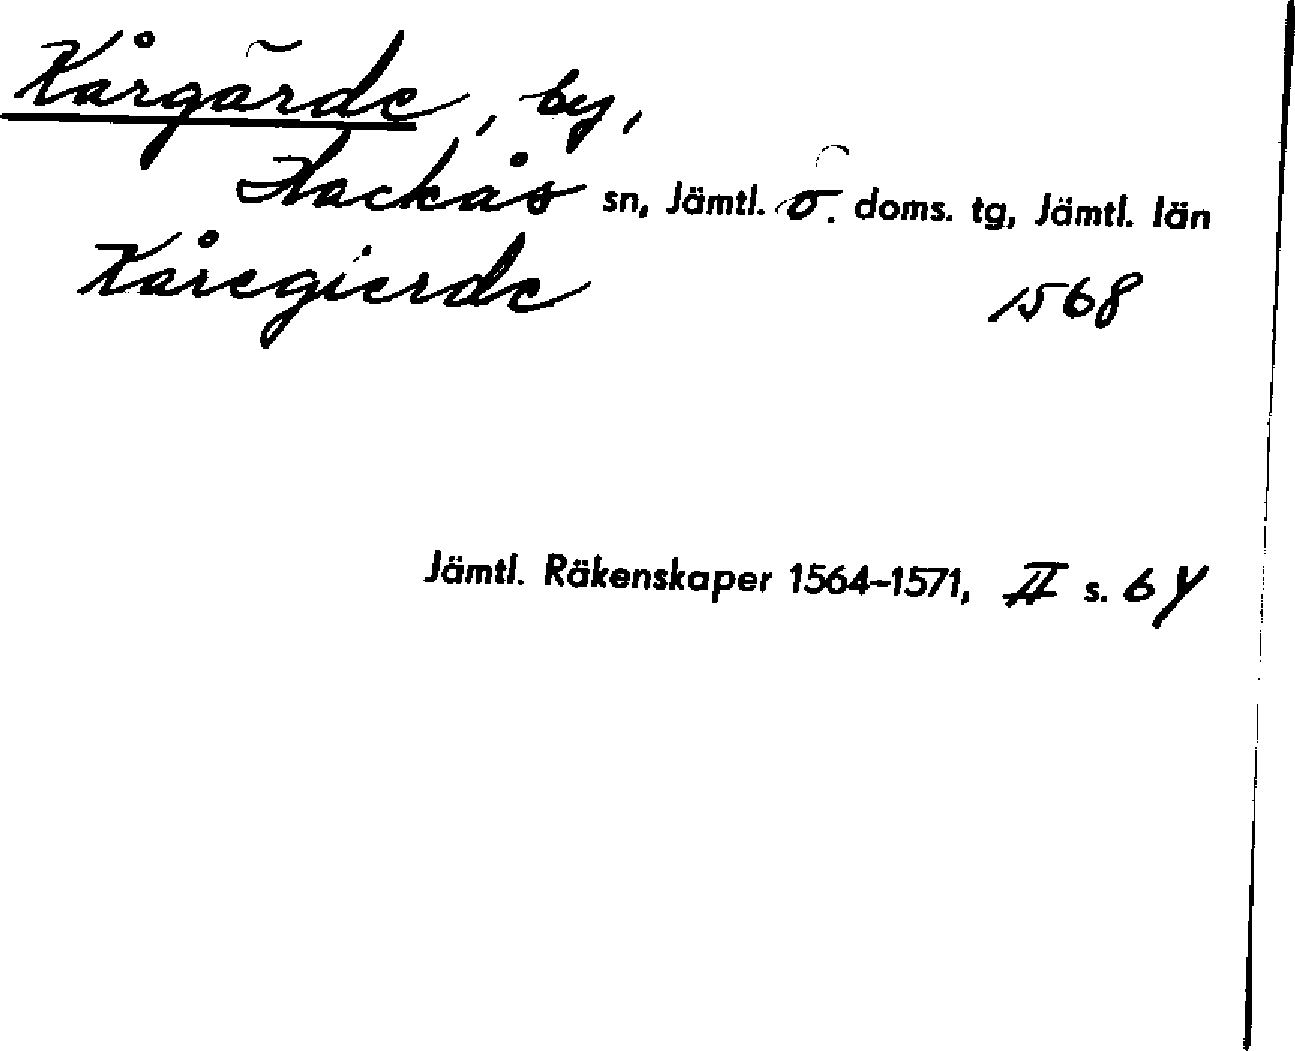 Kårgärde, by,
Hackås sn, Jämtl. ö. doms. tg, Jämtl. län
Kåregierde 1568
Jämtl. Räkenskaper 1564–1571, II s. 64